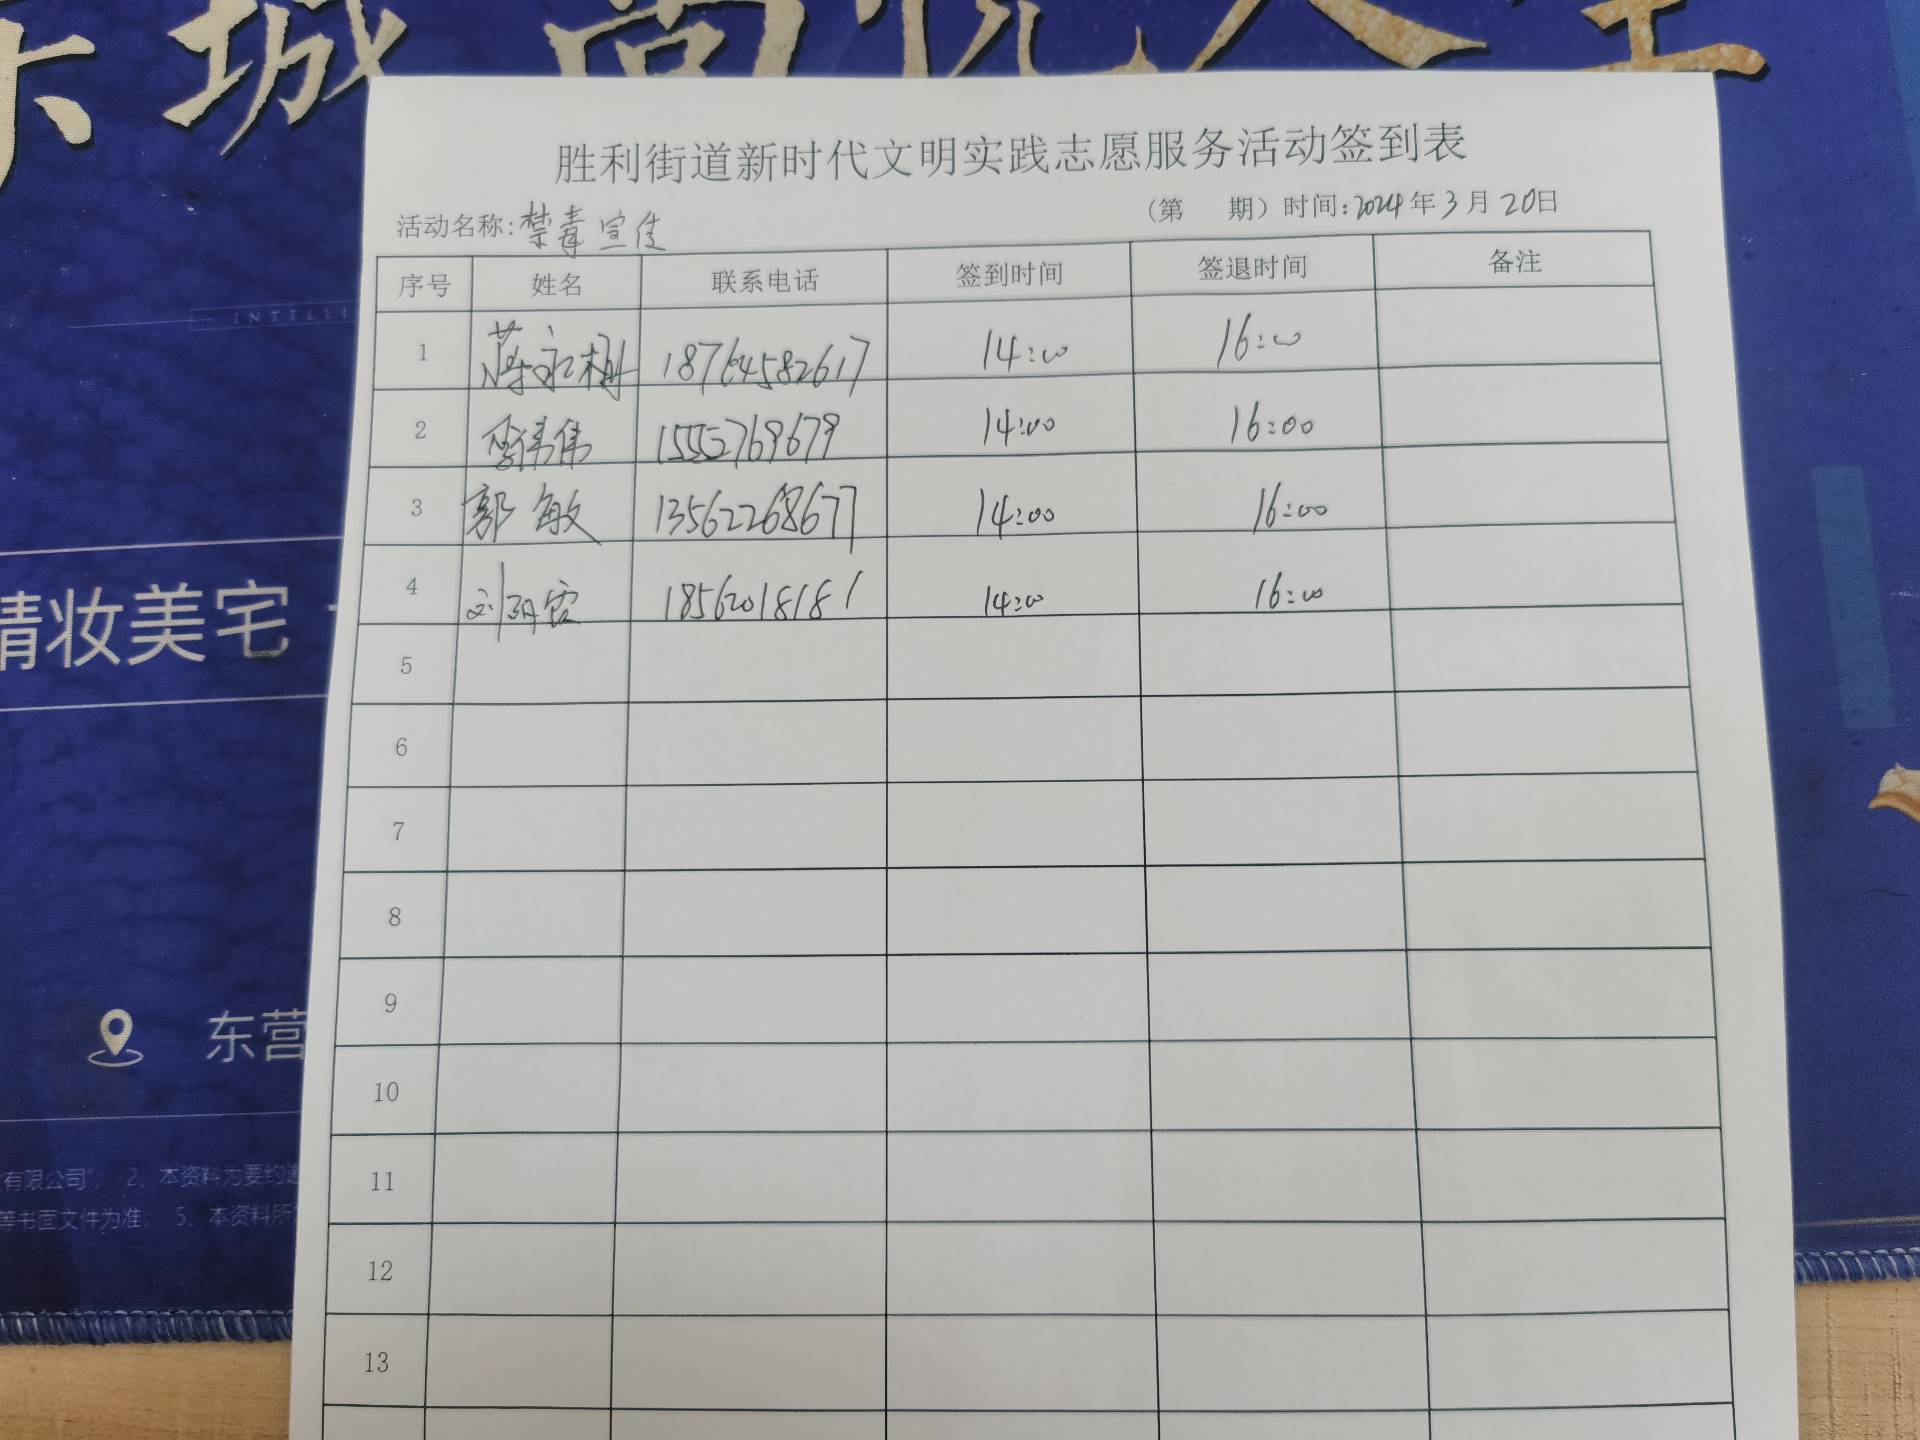 城 尚悦
INTELLI
胜利街道新时代文明实践志愿服务活动签到表
活动名称:禁毒宣传 (第 期) 时间:2024年3月20日
序号 姓名 联系电话 签到时间 签退时间 备注
1 蒋永树 18764582617 14:00 16:00
2 李伟伟 15552769679 14:00 16:00
3 郭敏 13562268677 14:00 16:00
4 刘 18562018181 14:00 16:00
5
6
7
8
9
10
11
12
13
精妆美宅
东营
有限公司"; 2、本资料为要约邀
等书面文件为准; 5、本资料所